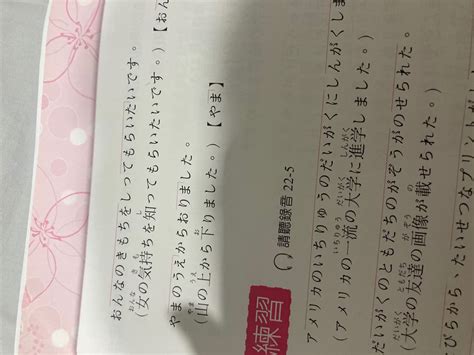 おんなのきもちをしってもらいたいです。
(女の気持ちを知ってもらいたいです。)【お
おんな きも し
やまのうえからおりました。
(山の上から下りました。)【やま】
やま うえ お
練習 請聽錄音 22-5
アメリカのいちりゅうのだいがくにしんがくしま
(アメリカの一流の大学に進学しました。)
いちりゅう だいがく しんがく
だいがくのともだちのがぞうがのせられた。
(大学の友達の画像が載せられた。)
だいがく ともだち がぞう の
びらから、たいせつなプリン